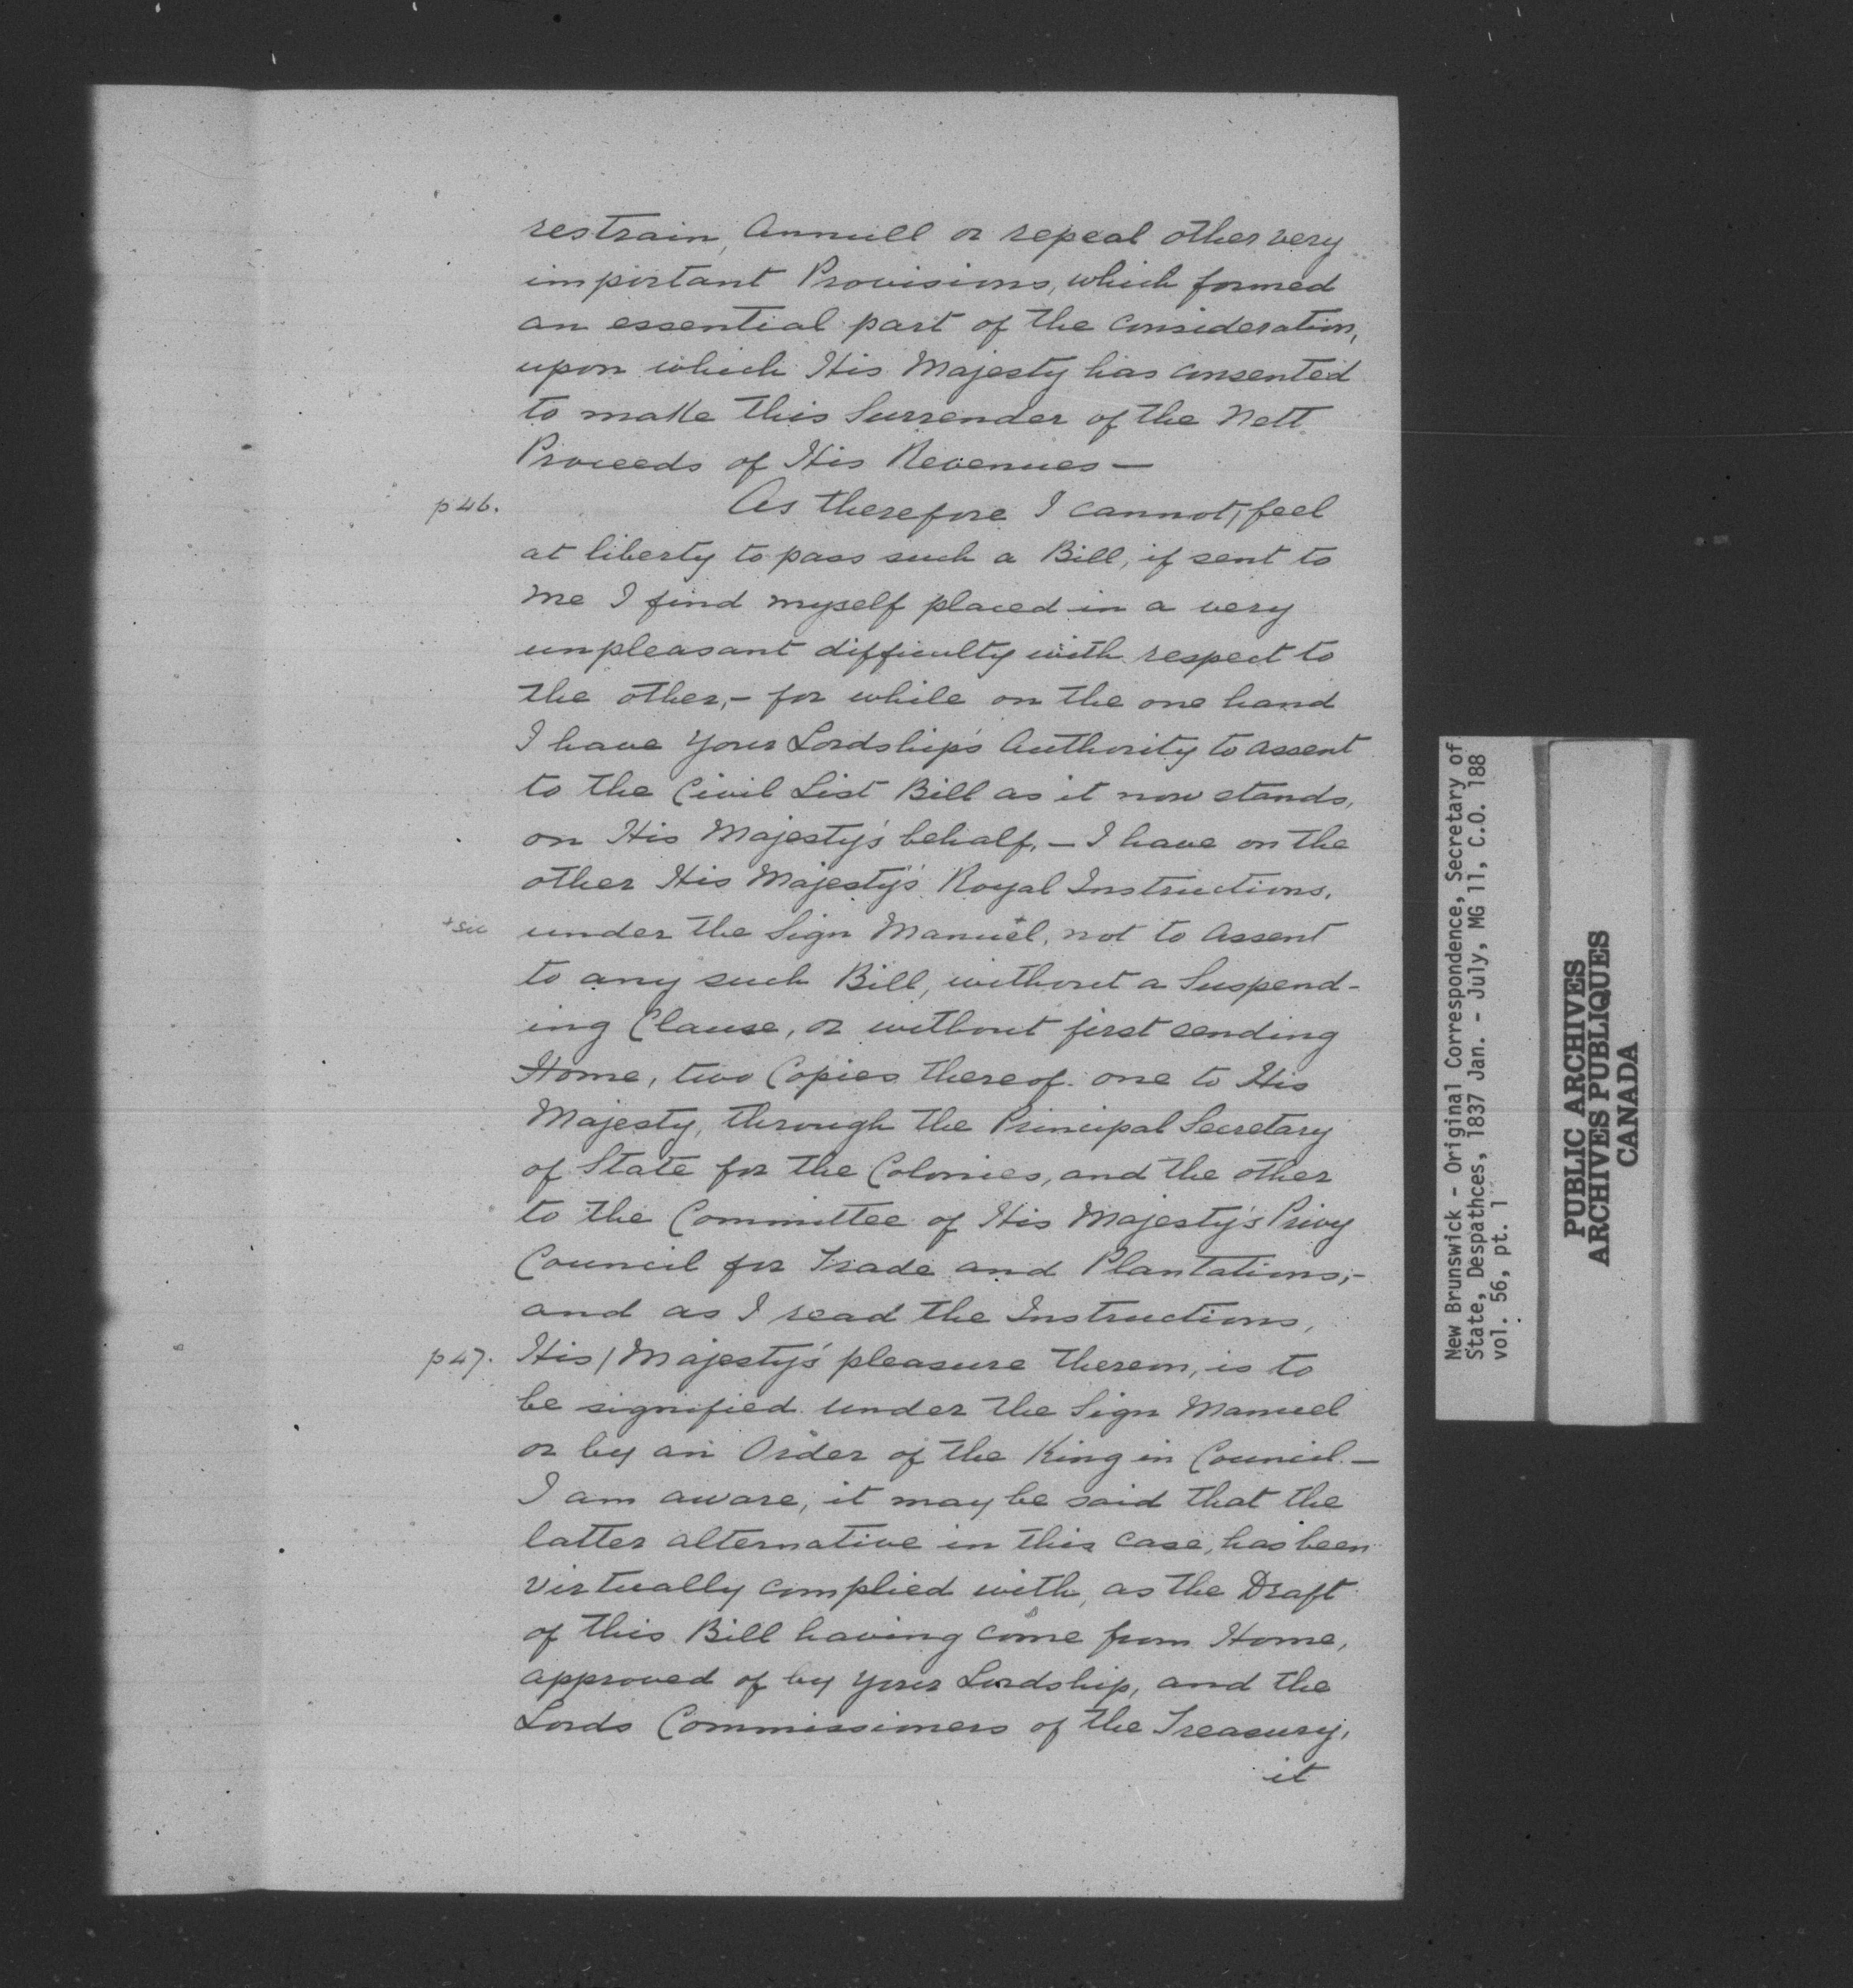 restrain, Annull or repeal other very
important Provisions, which formed
an essential part of the consideration,
upon which His Majesty has consented
to make this Surrender of the Nett
Proceeds of His Revenues —
p 46. As therefore I cannot,/feel
at liberty to pass such a Bill, if sent to
me I find myself placed in a very
unpleasant difficulty with respect to
the other,- for while on the one hand
I have your Lordship's Authority to assent
to the Civil List Bill as it now stands,
on His Majesty's behalf, — I have on the
other His Majesty's Royal Instructions,
+ sic under the Sign Manuel+, not to Assent
to any such Bill, without a Suspend-
ing Clause, or without first sending
Home, two Copies thereof: one to His
Majesty, through the Principal Secretary
of State for the Colonies, and the other
to the Committee of His Majesty's Privy
Council for Trade and Plantations;-
and as I read the Instructions,
p 47. His/Majesty's pleasure thereon, is to
be signified under the Sign Manuel
or by an Order of the King in Council. —
I am aware, it may be said that the
latter alternative in this case, has been
virtually complied with, as the Draft
of this Bill having come from Home,
approved of by your Lordship, and the
Lords Commissioners of the Treasury,
it
New Brunswick - Original Correspondence, Secretary of
State, Despathces, 1837 Jan. - July, MG 11, C.O. 188
vol. 56, pt. 1
PUBLIC ARCHIVES
ARCHIVES PUBLIQUES
CANADA